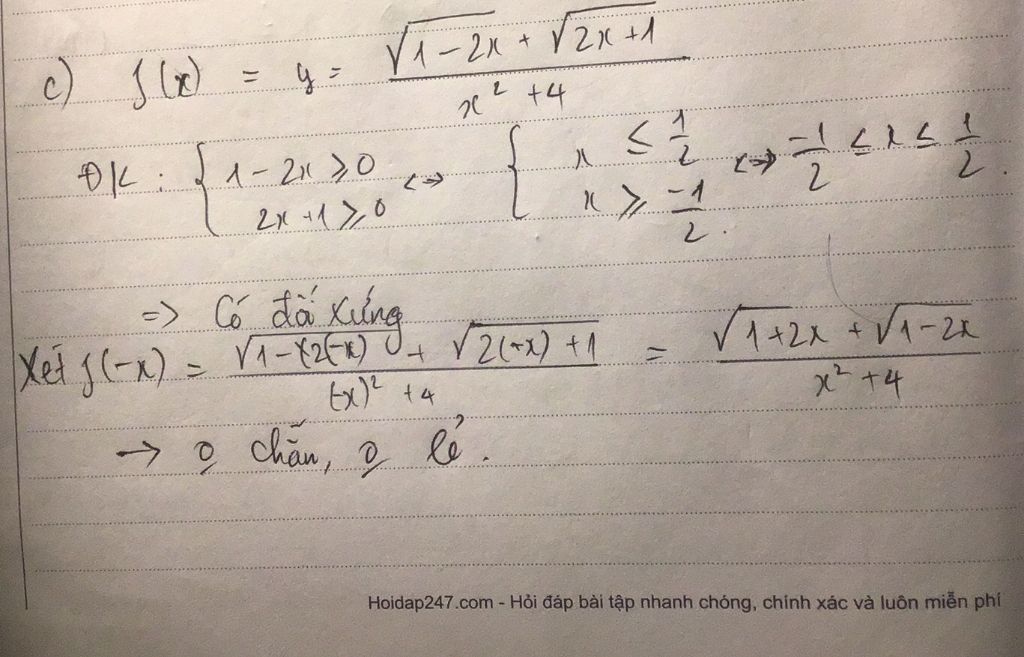 c) f(x) = y = (√(1-2x) + √(2x+1)) / (x² + 4)
ĐK : { 1-2x ≥ 0 <-> { x ≤ 1/2 <-> -1/2 ≤ x ≤ 1/2.
2x+1 ≥ 0 x ≥ -1/2.
=> Có đối xứng
Xét f(-x) = (√(1-(2(-x)) + √(2(-x)+1)) / ((-x)² + 4) = (√(1+2x) + √(1-2x)) / (x² + 4)
→ o chẵn, o lẻ.
Hoidap247.com - Hỏi đáp bài tập nhanh chóng, chính xác và luôn miễn phí